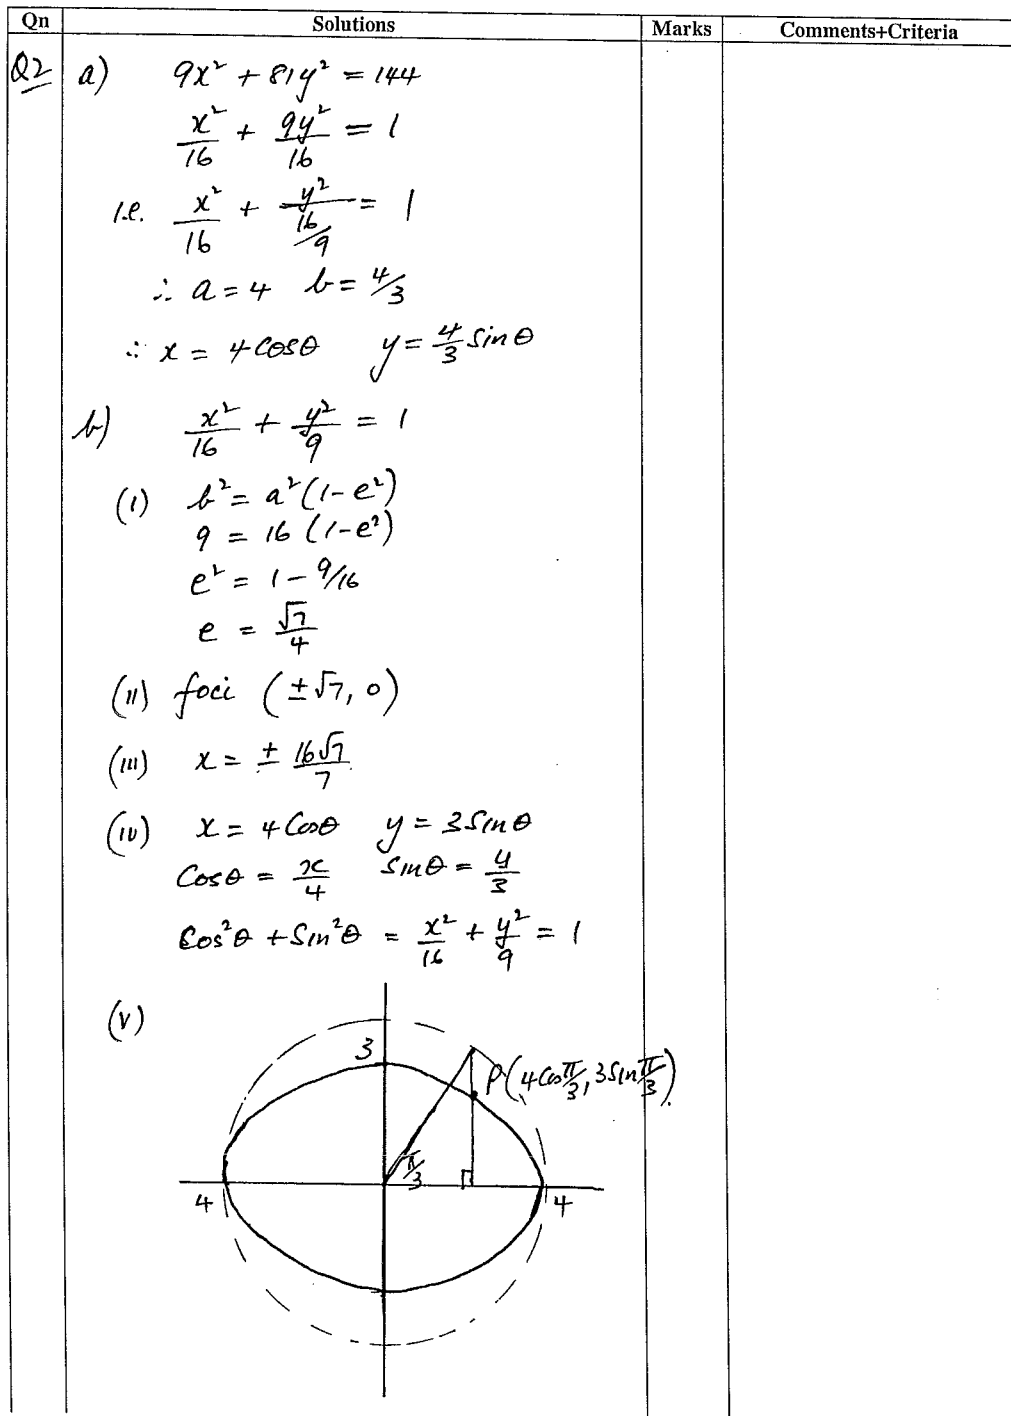 Qn Solutions Marks Comments+Criteria
Q2 a) 9x² + 81y² = 144
x²/16 + 9y²/16 = 1
i.e. x²/16 + y²/(16/9) = 1
∴ a = 4 b = 4/3
∴ x = 4 cosθ y = 4/3 sinθ
b) x²/16 + y²/9 = 1
(i) b² = a²(1-e²)
9 = 16 (1-e²)
e² = 1 - 9/16
e = √7/4
(ii) foci (±√7, 0)
(iii) x = ± 16√7/7
(iv) x = 4 Cosθ y = 3 Sinθ
Cosθ = x/4 Sinθ = y/3
Cos²θ + Sin²θ = x²/16 + y²/9 = 1
(v)
3
P(4 cos π/3, 3 Sin π/3)
π/3
4 4